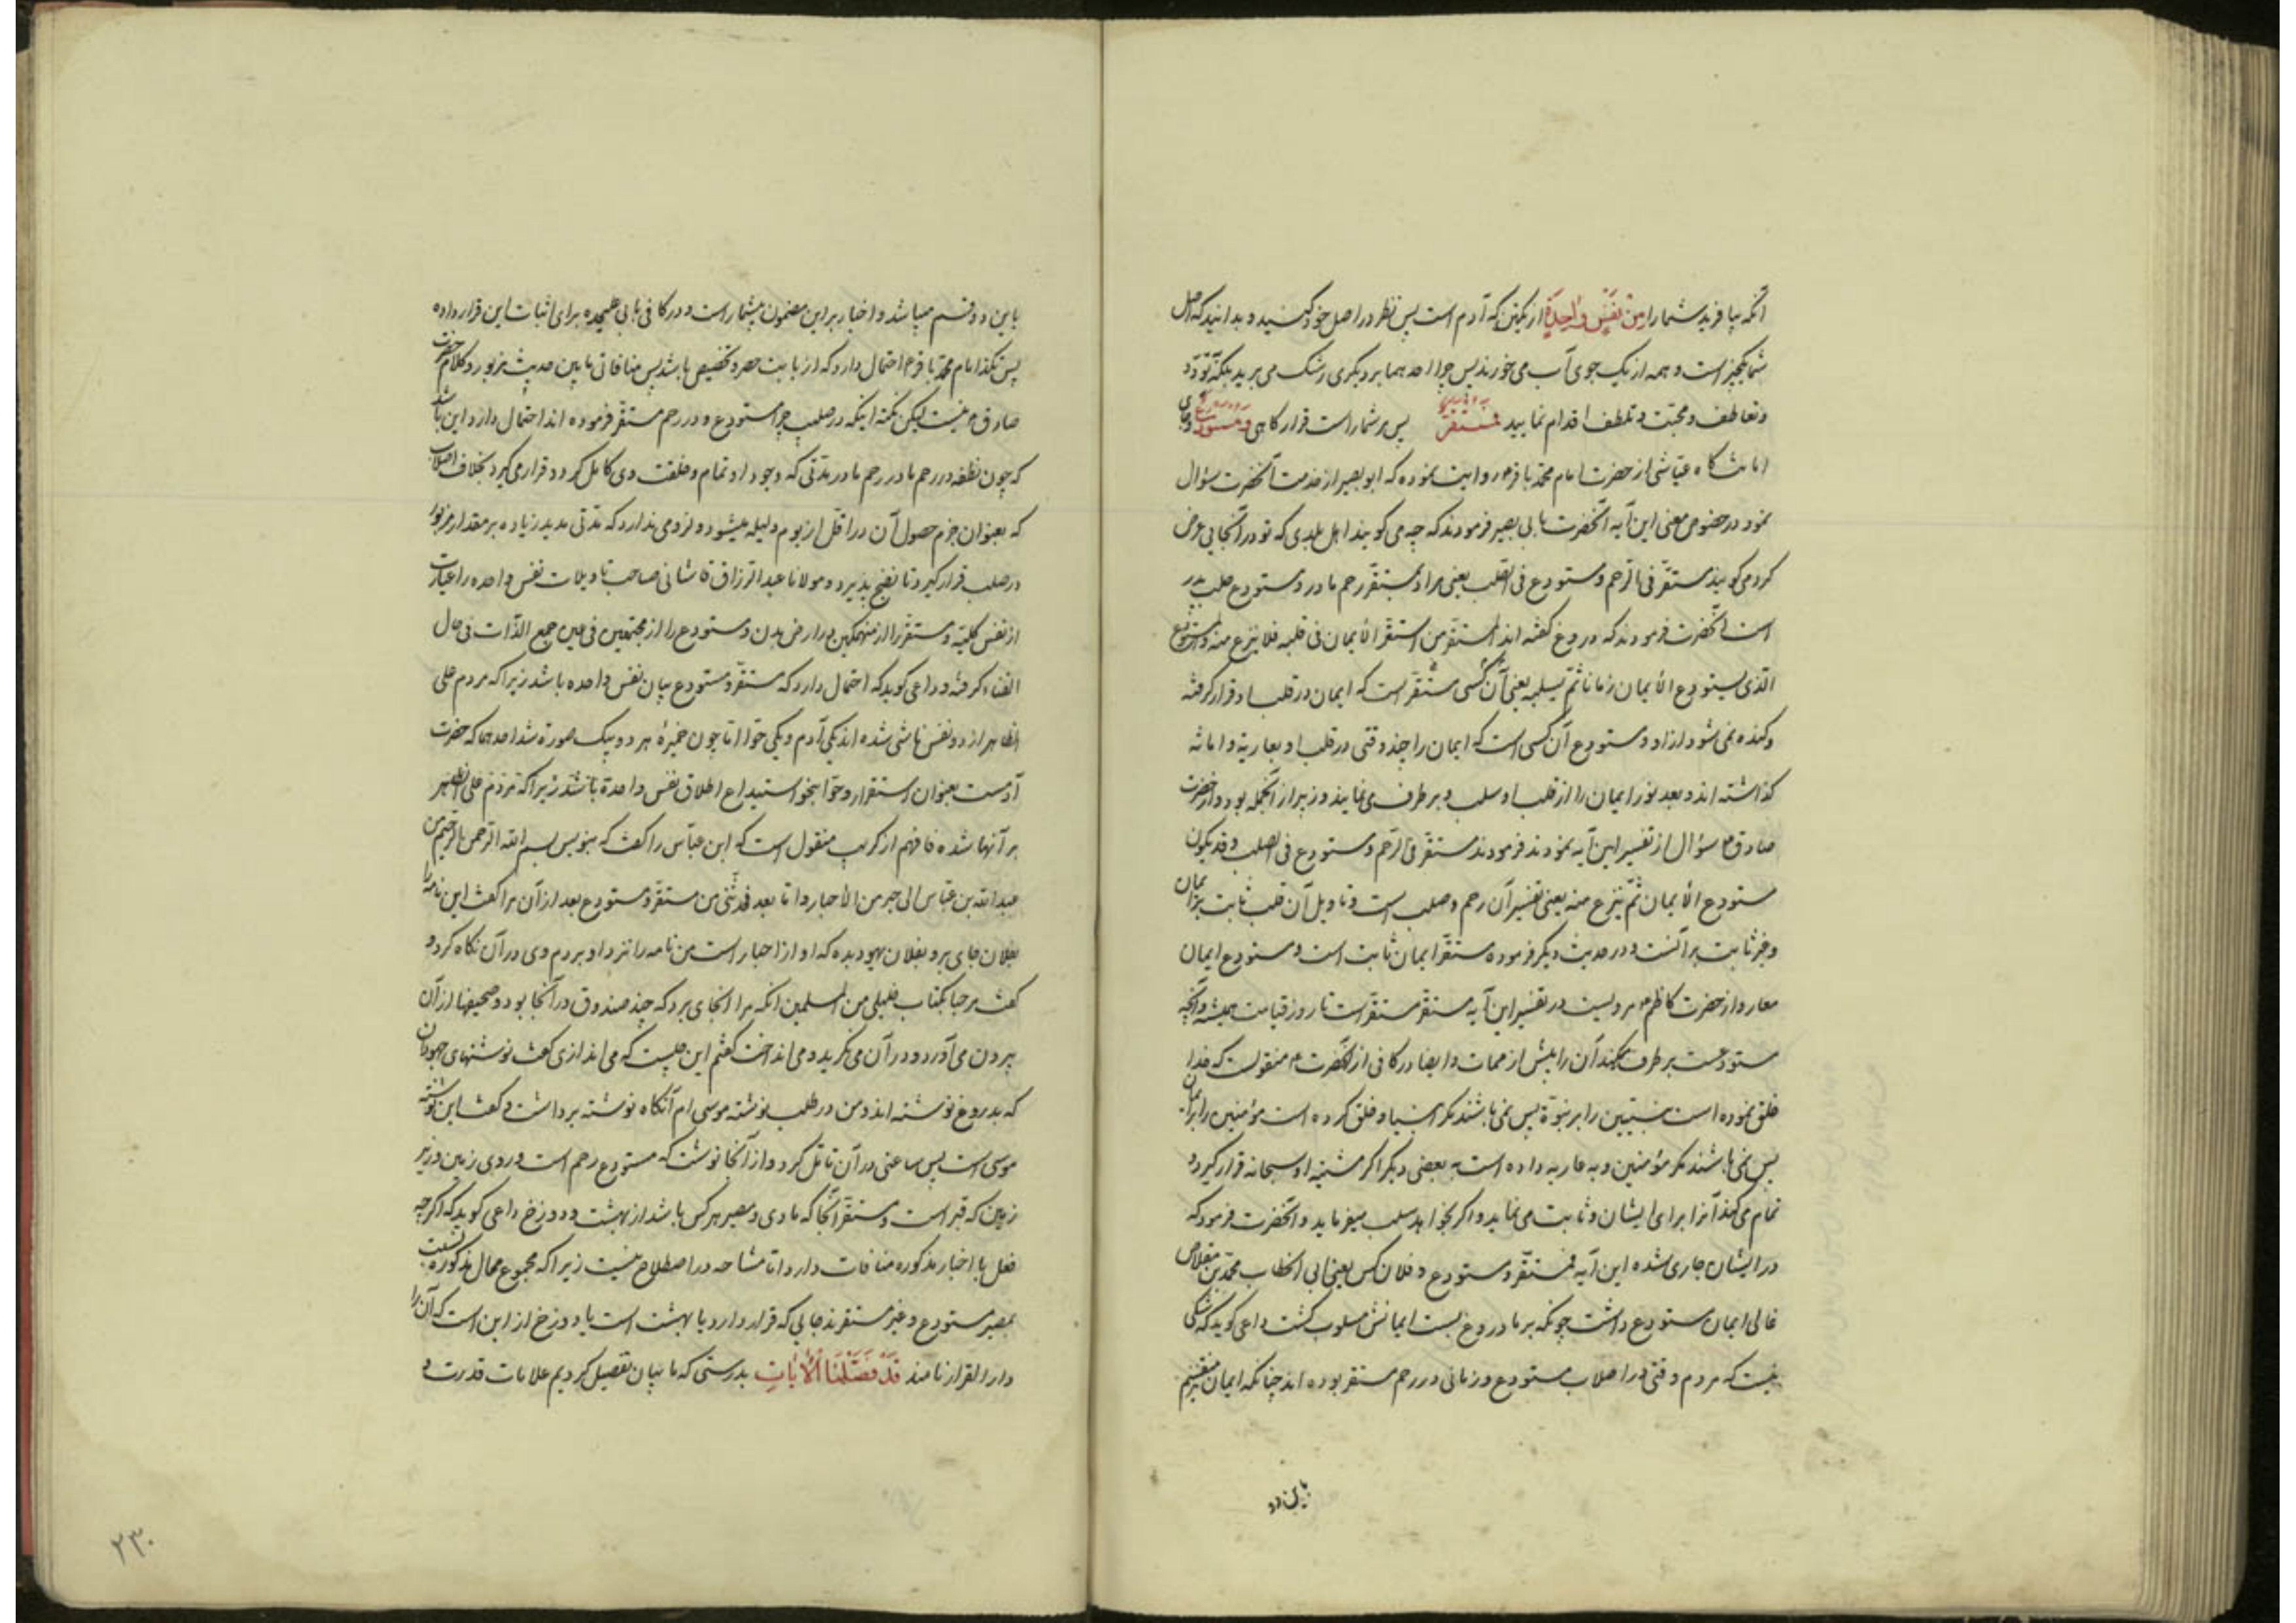 آنکه بیافرید شما را من نفس واحدة از یکتن که آدم است پس نظر در اصل خود کنید و بدانید که اصل
شما یکچیز است و همه از یک جوی آب می خورند پس چرا احد هما بر دیگری رشک می برید بلکه تودّد
و تعاطف و محبّت و تلطف اقدام نمایید فمستقرّ پس بر شما راست قرار کاهی و مستودع و جای
امانت کاه عیّاشی از حضرت امام محمّد باقر م روایت نموده که ابو بصیر از خدمت آنحضرت سؤال
نمود در خصوص معنی این آیه آنحضرت بابی بصیر فرمودند که چه می کویند اهل بلدی که تو در آنجایی عرض
کرد می کویند مستقرّ فی الرّحم و مستودع فی الصّلب یعنی مراد بمستقرّ رحم مادر و مستودع صلب پدر
است آنحضرت فرمودند که دروغ کفته اند المستقرّ من استقرّ الأیمان فی قلبه فلا ینزع منه و المستودع
الّذی یستودع الأیمان زمانا ثمّ یسلبه یعنی آن کسی مستقرّ است که ایمان در قلب او قرار کرفته
و کنده نمی شود از او و مستودع آن کسی است که ایمان را چند وقتی در قلب او بعاریة و امانة
کذاشته اند و بعد نور ایمان را از قلب او سلب و بر طرف می نمایند و زبیر از آنجمله بود و از حضرت
صادق م سؤال از تفسیر این آیه نمودند فرمودند مستقرّ فی الرّحم و مستودع فی الصلب و قد یکون
مستودع الأیمان ثمّ ینزع منه یعنی تفسیر آن رحم و صلب است و تاویل آن قلب ثابت بر ایمان
و غیر ثابت بر آنست و در حدیث دیگر فرموده مستقرّ ایمان ثابت است و مستودع ایمان
معار و از حضرت کاظم م مرویست در تفسیر این آیه مستقرّ مستقرّ است تا روز قیامت همیشه و آنچه
مستودعست بر طرف میکند آن را پیش از ممات و ایضا در کافی از آنحضرت م منقولست که خدا
خلق نموده است نبیّین را بر نبوّة پس نمی باشند مکر انبیا و خلق کرده است مؤمنین را بر ایمان
پس نمی باشند مکر مؤمنین و به عاریه داده است به بعضی دیکر اکر مشیّة او سبحانه قرار کیرد
تمام می کند آنرا برای ایشان و ثابت می نماید و اکر بخواهد سلب میفرماید و آنحضرت فرمود که
در ایشان جاری شده این آیه فمستقرّ و مستودع و فلان کس یعنی ابی الخطاب محمّد بن مقلاص
غالی ایمان مستودع داشت چونکه بر ما دروغ بست ایمانش مسلوب کشت داعی کوید که شکی
نیست که مردم وقتی در اصلاب مستودع و زمانی در رحم مستقر بوده اند چنانکه ایمان منقسم
باین دو
باین دو قسم میباشد و اخبار بر این مضمون بیشمار است و در کافی بابی علیحده برای اثبات این قرار داده
پس تکذیب امام محمّد باقر م احتمال دارد که از بابت حصر و تخصیص باشد پس منافاتی مابین حدیث مزبور و کلام حضرت
صادق م نیست لیکن نکتهٔ اینکه در صلب چرا مستودع و در رحم مستقرّ فرموده اند احتمال دارد این باشد
که چون نطفه در رحم مادر مدّتی که وجود او تمام و خلقت وی کامل کردد قرار می کیرد بخلاف اصلاب
که بعنوان جزم حصول آن در اقل از یوم و لیله میشود و لزومی ندارد که مدّتی مدید زیاده بر مقدار مزبور
در صلب قرار کیرد تا نضج پذیرد و مولانا عبد الرّزاق کاشانی صاحب تاویلات نفس واحده را عبارت
از نفس کلیّه و مستقرّ را از منهمکین در ارض بدن و مستودع را از مجتمعین فی عین جمع الذّات فی حال
الفناء کرفته و داعی کوید که احتمال دارد که مستقرّ و مستودع بیان نفس واحده باشد زیرا که مردم علی
الظاهر از دو نفس ناشی شده اند یکی آدم و یکی حوّا امّا چون خمیرهٔ هر دو بیک صورة شد احدهما که حضرت
آدمست بعنوان استقرار و حوّا بنحو استیداع اطلاق نفس واحدة باشد زیرا که مردم علی الظاهر
بر آنها شده فافهم از کریب منقول است که ابن عبّاس را کفت که بنویس بسم الله الرّحمن الرّحیم من
عبد الله بن عبّاس الی حبر من الأحبار امّا بعد فحدّثنی من مستقرّ و مستودع بعد از آن مرا کفت این نامه را
بفلان جای برو بفلان یهود بده که او از احبار است من نامه را نزد او بردم وی در آن نکاه کرد و
کفت مرحبا بکتاب خلیلی من المسلمین آنکه مرا آنجای برد که چند صندوق در آنجا بود و صحیفها از آن
بیرون می آورد و در آن می نکرید و می انداخت کفتم این چیست که می اندازی کفت نوشتهای جهودان
که بدروغ نوشته اند و من در طلب نوشته موسی ام آنکاه نوشته برداشت و کفت این نوشته
موسی است پس ساعتی در آن تامّل کرد و از آنجا نوشت که مستودع رحم است و روی زمین و زیر
زمین که قبر است و مستقرّ آنجا که ماوی و مصیر هر کس باشد از بهشت و دوزخ داعی کوید که اکر چه
فعل با اخبار مذکوره منافات دارد امّا مشاحه در اصطلاح نیست زیرا که مجموع محال مذکوره نسبت
بمصیر مستودع و غیر مستقرند جایی که قرار دارد یا بهشت است یا دوزخ از این است که آن را
دار القرار نامند قد فصّلنا الأیات بدرستی که ما بیان تفصیل کردیم علامات قدرت و
۲۳۰